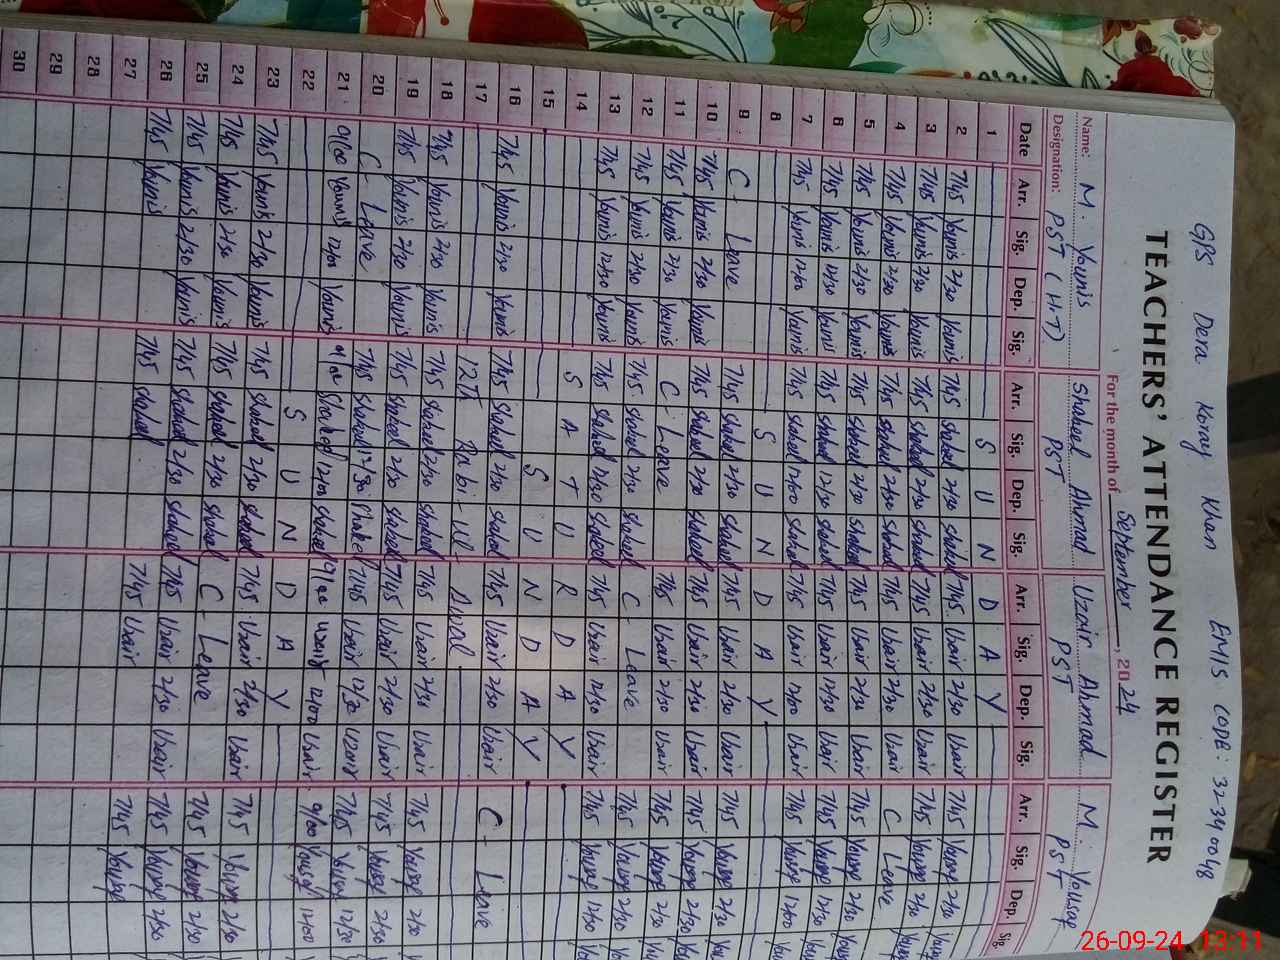 GPS Dera Koray Khan EMIS CODE: 32340048
TEACHERS' ATTENDANCE REGISTER
For the month of September, 2024
Name: M. Younis Shakeel Ahmad Uzair Ahmad M. Yousaf
Designation: PST (H.T) PST PST PST
Date Arr. Sig. Dep. Sig. Arr. Sig. Dep. Sig. Arr. Sig. Dep. Sig. Arr. Sig. Dep. Sig.
1 S U N D A Y
2 7/45 Younis 2/30 Younis 7/45 Shakeel 2/30 Shakeel 7/45 Uzair 2/30 Uzair 7/45 Yousaf 2/30
3 7/45 Younis 2/30 Younis 7/45 Shakeel 2/30 Shakeel 7/45 Uzair 2/30 Uzair 7/45 Yousaf 2/30
4 7/45 Younis 2/30 Younis 7/45 Shakeel 2/30 Shakeel 7/45 Uzair 2/30 Uzair C Leave
5 7/45 Younis 2/30 Younis 7/45 Shakeel 2/30 Shakeel 7/45 Uzair 2/30 Uzair 7/45 Yousaf 2/30
6 7/45 Younis 12/30 Younis 7/45 Shakeel 12/30 Shakeel 7/45 Uzair 12/30 Uzair 7/45 Yousaf 12/30
7 7/45 Younis 12/00 Younis 7/45 Shakeel 12/00 Shakeel 7/45 Uzair 12/00 Uzair 7/45 Yousaf 12/00
8 S U N D A Y
9 C - Leave 7/45 Shakeel 2/30 Shakeel 7/45 Uzair 2/30 Uzair 7/45 Yousaf 2/30
10 7/45 Younis 2/30 Younis 7/45 Shakeel 2/30 Shakeel 7/45 Uzair 2/30 Uzair 7/45 Yousaf 2/30
11 7/45 Younis 2/30 Younis C - Leave 7/45 Uzair 2/30 Uzair 7/45 Yousaf 2/30
12 7/45 Younis 2/30 Younis 7/45 Shakeel 2/30 Shakeel C - Leave 7/45 Yousaf 2/30
13 7/45 Younis 12/30 Younis 7/45 Shakeel 12/30 Shakeel 7/45 Uzair 12/30 Uzair 7/45 Yousaf 12/30
14 S A T U R D A Y
15 S U N D A Y
16 7/45 Younis 2/30 Younis 7/45 Shakeel 2/30 Shakeel 7/45 Uzair 2/30 Uzair C - Leave
17 12th Rabi-ul-Awal
18 7/45 Younis 2/30 Younis 7/45 Shakeel 2/30 Shakeel 7/45 Uzair 2/30 Uzair 7/45 Yousaf 2/30
19 7/45 Younis 2/30 Younis 7/45 Shakeel 2/30 Shakeel 7/45 Uzair 2/30 Uzair 7/45 Yousaf 2/30
20 C - Leave 7/45 Shakeel 12/30 Shakeel 7/45 Uzair 12/30 Uzair 7/45 Yousaf 12/30
21 9/00 Younis 12/00 Younis 9/00 Shakeel 12/00 Shakeel 9/00 Uzair 12/00 Uzair 9/00 Yousaf 12/00
22 S U N D A Y
23 7/45 Younis 2/30 Younis 7/45 Shakeel 2/30 Shakeel 7/45 Uzair 2/30 Uzair 7/45 Yousaf 2/30
24 7/45 Younis 2/30 Younis 7/45 Shakeel 2/30 Shakeel C - Leave 7/45 Yousaf 2/30
25 7/45 Younis 2/30 Younis 7/45 Shakeel 2/30 Shakeel 7/45 Uzair 2/30 Uzair 7/45 Yousaf 2/30
26 7/45 Younis 7/45 Shakeel 7/45 Uzair 7/45 Yousaf
27
28
29
30
26-09-24 13:11